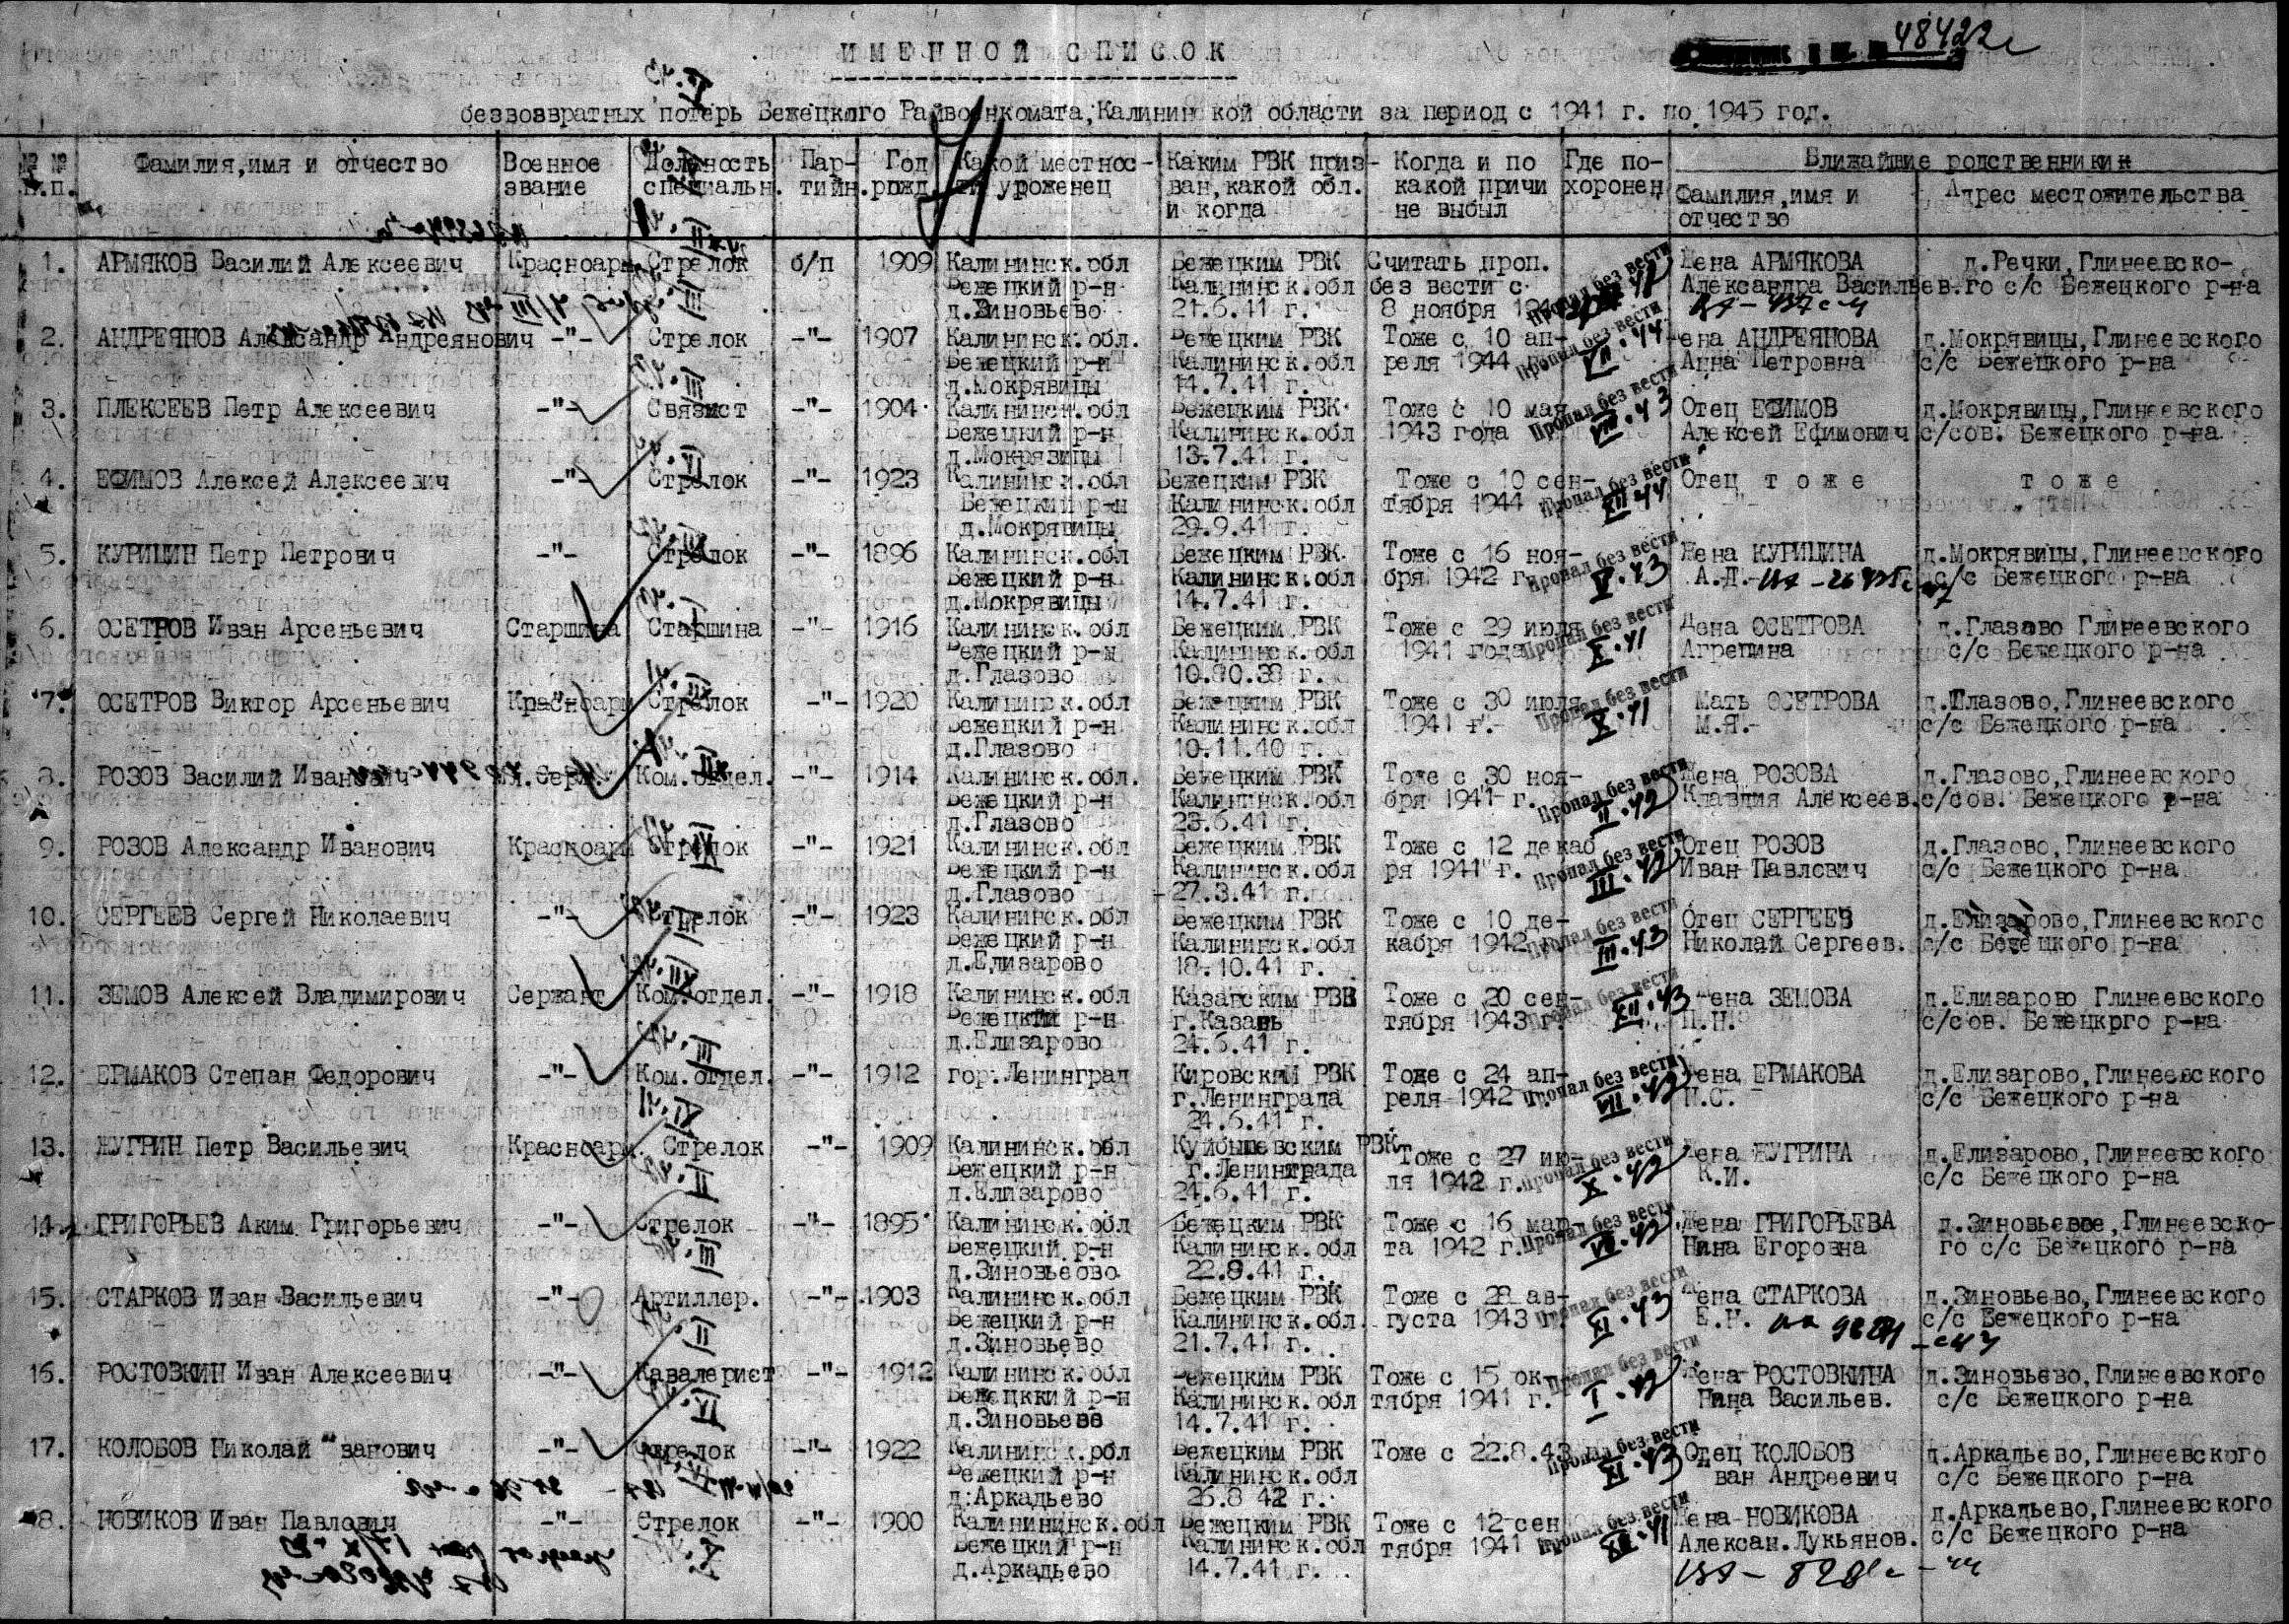 ИМЕННОЙ СПИСОК
48422с
безвозвратных потерь Бежецкого Райвоенкомата, Калининской области за период с 1941 г. по 1945 год.
№ № п.п. Фамилия, имя и отчество Военное звание Должность специальн. Пар-тийн. Год рожд. Какой местнос-ти уроженец Каким РВК приз-ван, какой обл. и когда Когда и по какой причи не выбыл Где по-хоронен Ближайшие родственники
Фамилия, имя и отчество Адрес местожительства
1. АРМЯКОВ Василий Алексеевич Красноарм Стрелок б/п 1909 Калининск.обл Бежецким РВК Считать проп. Пропал без вести Жена АРМЯКОВА д.Речки, Глинеевско-
Бежецкий р-н Калининск.обл без вести с Александра Васильев. го с/с Бежецкого р-на
д.Зиновьево 21.6.41 г. 8 ноября
2. АНДРЕЯНОВ Александр Андреянович -"- Стрелок -"- 1907 Калининск.обл. Бежецким РВК Тоже с 10 ап- Пропал без вести VII.44 ена АНДРЕЯНОВА д.Мокрявицы, Глинеевского
Бежецкий р-н Калининск.обл реля 1944 Анна Петровна с/с Бежецкого р-на
д.Мокрявицы 14.7.41 г.
3. ПЛЕКСЕЕВ Петр Алексеевич -"- Связист -"- 1904 Калининск.обл Бежецким РВК Тоже с 10 мая Пропал без вести VIII.43 Отец ЕФИМОВ д.Мокрявицы, Глинеевского
Бежецкий р-н Калининск.обл 1943 года Алексей Ефимович с/сов. Бежецкого р-на
д.Мокрявицы 13.7.41 г.
4. ЕФИМОВ Алексей Алексеевич -"- Стрелок -"- 1923 Калининск.обл Бежецким РВК Тоже с 10 сен- Пропал без вести XII.44 Отец тоже тоже
Бежецкий р-н Калининск.обл тября 1944
д.Мокрявицы 29.9.41 г.
5. КУРИЦИН Петр Петрович -"- Стрелок -"- 1896 Калининск.обл Бежецким РВК Тоже с 16 ноя- Пропал без вести Жена КУРИЦИНА д.Мокрявицы, Глинеевского
Бежецкий р-н Калининск.обл бря 1942 г. А.Д. с/с Бежецкого р-на
д.Мокрявицы 14.7.41 г.
6. ОСЕТРОВ Иван Арсеньевич Старшина Старшина -"- 1916 Калининск.обл Бежецким РВК Тоже с 29 июля Пропал без вести X.41 Жена ОСЕТРОВА д.Глазово Глинеевского
Бежецкий р-н Калининск.обл 1941 года Агрепина с/с Бежецкого р-на
д.Глазово 38 г.
7. ОСЕТРОВ Виктор Арсеньевич Красноарм Стрелок -"- 1920 Калининск.обл Бежецким РВК Тоже с 30 июля Пропал без вести X.41 Мать ОСЕТРОВА д.Шлазово, Глинеевского
Бежецкий р-н Калининск.обл 1941 г. М.Я. с/с Бежецкого р-на
д.Глазово 10.11.40 г.
8. РОЗОВ Василий Иванович Ком.отдел. -"- 1914 Калининск.обл. Бежецким РВК Тоже с 30 ноя- Пропал без вести II.42 Жена РОЗОВА д.Глазово, Глинеевского
Бежецкий р-н Калининск.обл бря 1941 г. Клавдия Алексеев. с/сов. Бежецкого р-на
д.Глазово 23.6.41 г.
9. РОЗОВ Александр Иванович Красноарм Стрелок -"- 1921 Калининск.обл Бежецким РВК Тоже с 12 декаб Пропал без вести III.42 Отец РОЗОВ д.Глазово, Глинеевского
Бежецкий р-н Калининск.обл ря 1941 г. Иван Павлович с/с Бежецкого р-на
д.Глазово 27.3.41 г.
10. СЕРГЕЕВ Сергей Николаевич -"- Стрелок -"- 1923 Калининск.обл Бежецким РВК Тоже с 10 де- Пропал без вести III.43 Отец СЕРГЕЕВ д.Елизарово, Глинеевского
Бежецкий р-н Калининск.обл кабря 1942 Николай Сергеев. с/с Бежецкого р-на
д.Елизарово 18.10.41 г.
11. ЗЕМОВ Алексей Владимирович Сержант Ком.отдел. -"- 1918 Калининск.обл Казанским РВК Тоже с 20 сен- Пропал без вести XII.43 ена ЗЕМОВА д.Елизарово Глинеевского
Бежецкий р-н г.Казань тября 1943 г. П.Н. с/сов. Бежецкрго р-на
д.Елизарово 24.6.41 г.
12. ЕРМАКОВ Степан Федорович -"- Ком.отдел. -"- 1912 гор.Ленинград Кировским РВК Тоже с 24 ап- Пропал без вести VII.42 ена ЕРМАКОВА д.Елизарово, Глинеевского
г.Ленинграда реля 1942 с/с Бежецкого р-на
24.6.41 г.
13. ЖУГРИН Петр Васильевич Красноарм. Стрелок -"- 1909 Калининск.обл Куйбышевским РВК Тоже с 27 ию- Пропал без вести X.42 ена ЖУГРИНА д.Елизарово, Глинеевского
Бежецкий р-н г.Ленинграда ля 1942 г. К.И. с/с Бежецкого р-на
д.Елизарово 24.6.41 г.
14. ГРИГОРЬЕВ Аким Григорьевич -"- Стрелок -"- 1895 Калининск.обл Бежецким РВК Тоже с 16 мар Пропал без вести Жена ГРИГОРЬЕВА д.Зиновьевое, Глинеевско-
Бежецкий р-н Калининск.обл та 1942 г. Нина Егоровна го с/с Бежецкого р-на
д.Зиновьеово 22.8.41 г.
15. СТАРКОВ Иван Васильевич -"- Артиллер. -"- 1903 Калининск.обл Бежецким РВК Тоже с 28 ав- Пропал без вести XI.43 ена СТАРКОВА д.Зиновьево, Глинеевского
Бежецкий р-н Калининск.обл. густа 1943 г. с/с Бежецкого р-на
д.Зиновьево 21.7.41 г.
16. РОСТОВКИН Иван Алексеевич -"- Кавалерист -"- 1912 Калининск.обл Бежецким РВК Тоже с 15 ок Пропал без вести I.42 ена РОСТОВКИНА д.Зиновьево, Глинеевского
Бежецккий р-н Калининск.обл тября 1941 г. Нина Васильев. с/с Бежецкого р-на
д.Зиновьево 14.7.41 г.
17. КОЛОБОВ Николай ванович -"- Стрелок -"- 1922 Калининск.обл Бежецким РВК Тоже с 22.8.43 Пропал без вести XI.43 Отец КОЛОБОВ д.Аркадьево, Глинеевского
Бежецкий р-н Калининск.обл ван Андреевич с/с Бежецкого р-на
д.Аркадьево 26.8 42 г.
18. НОВИКОВ Иван Павлович -"- Стрелок -"- 1900 Калинининск.обл Бежецким РВК Тоже с 12 сен Пропал без вести XII.41 Жена НОВИКОВА д.Аркадьево, Глинеевского
Бежецкий р-н Калининск.обл тября 1941 Алексан.Лукьянов. с/с Бежецкого р-на
д.Аркадьево 14.7.41 г.